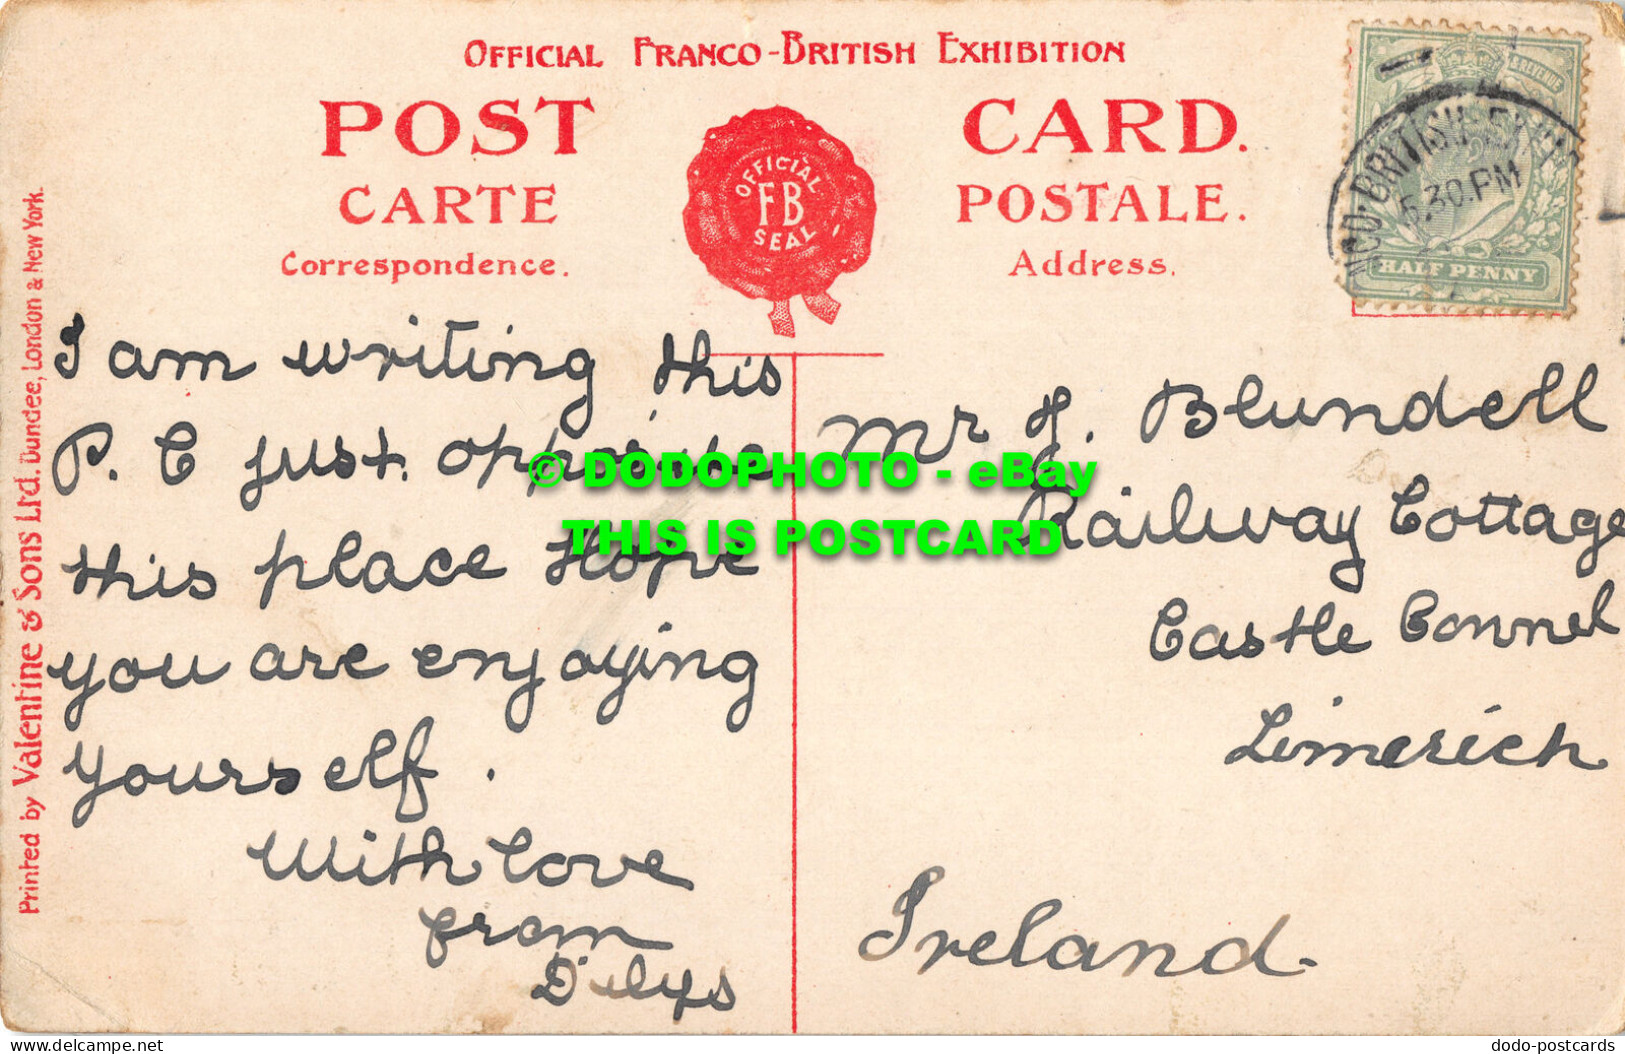 OFFICIAL FRANCO-BRITISH EXHIBITION
POST CARD.
CARTE POSTALE.
Correspondence. Address.
OFFICIAL
FB
SEAL
REVENUE
5.30.PM
HALF PENNY
Printed by Valentine & Sons Ltd. Dundee, London & New York.
I am writing this
P. C just opposite
this place Hope
you are enjoying
yourself.
With love
from
Dilys
Mr J. Blundell
Railway Cottage
Castle Connel
Limerick
Ireland.
© DODOPHOTO - eBay
THIS IS POSTCARD
dodo-postcards